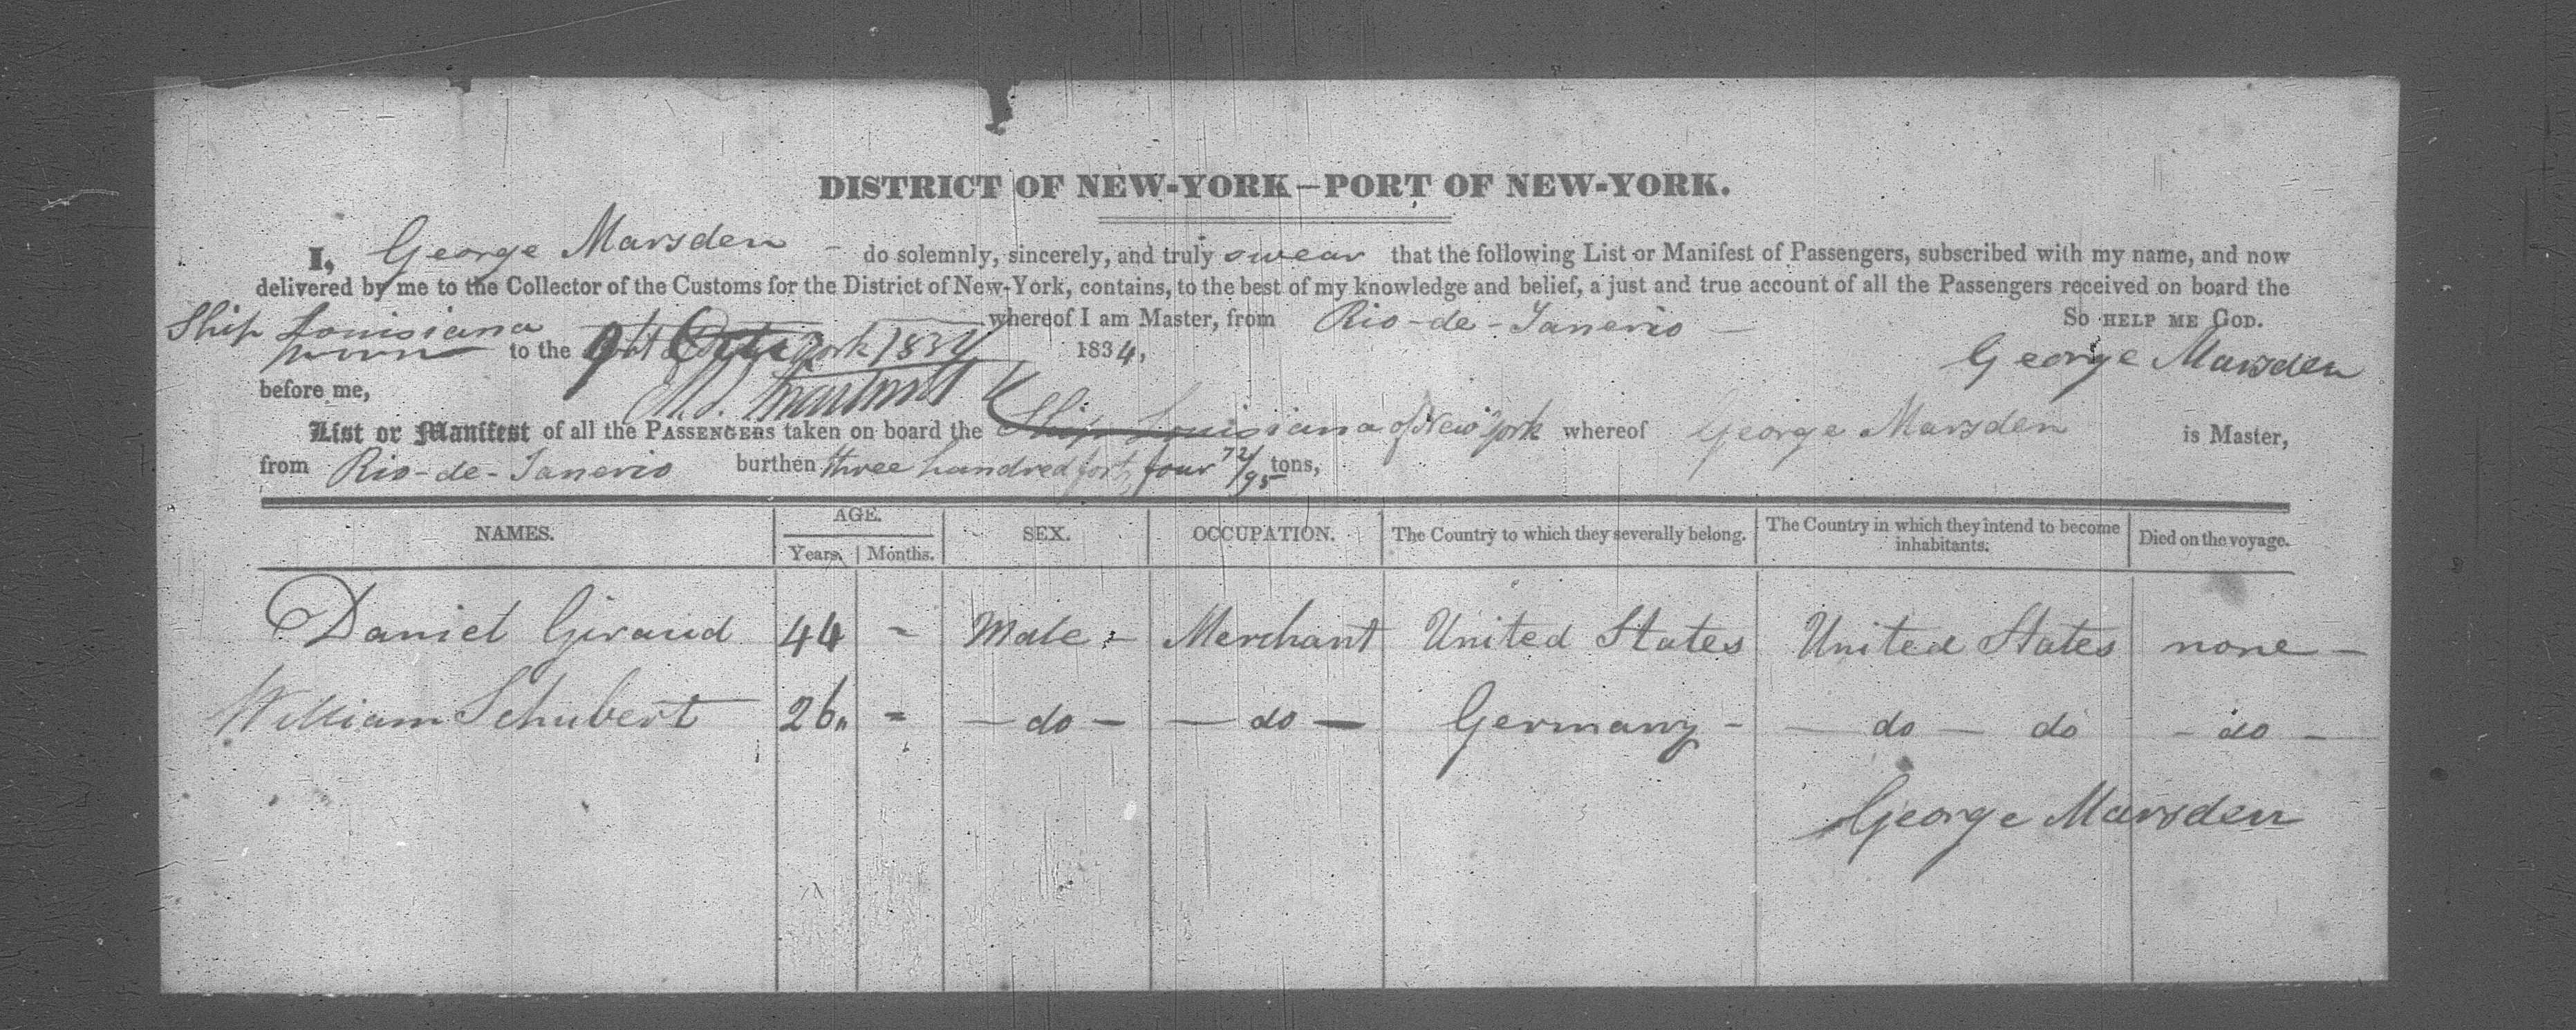 DISTRICT OF NEW-YORK—PORT OF NEW-YORK.
I, George Marsden - do solemnly, sincerely, and truly swear that the following List or Manifest of Passengers, subscribed with my name, and now
delivered by me to the Collector of the Customs for the District of New-York, contains, to the best of my knowledge and belief, a just and true account of all the Passengers received on board the
Ship Louisiana whereof I am Master, from Rio-de-Janerio - SO HELP ME GOD.
to the 1834, George Marsden
before me,
List or Manifest of all the PASSENGERS taken on board the Ship Louisiana of New York whereof George Marsden is Master,
from Rio-de-Janerio burthen three hundred forty four 72/95 tons,
NAMES. AGE. Years. Months. SEX. OCCUPATION. The Country to which they severally belong. The Country in which they intend to become inhabitants. Died on the voyage.
Daniel Giraud 44 - Male - Merchant United States United States none -
William Schubert 26 " - - do - - do - Germany - - do - do - do -
George Marsden